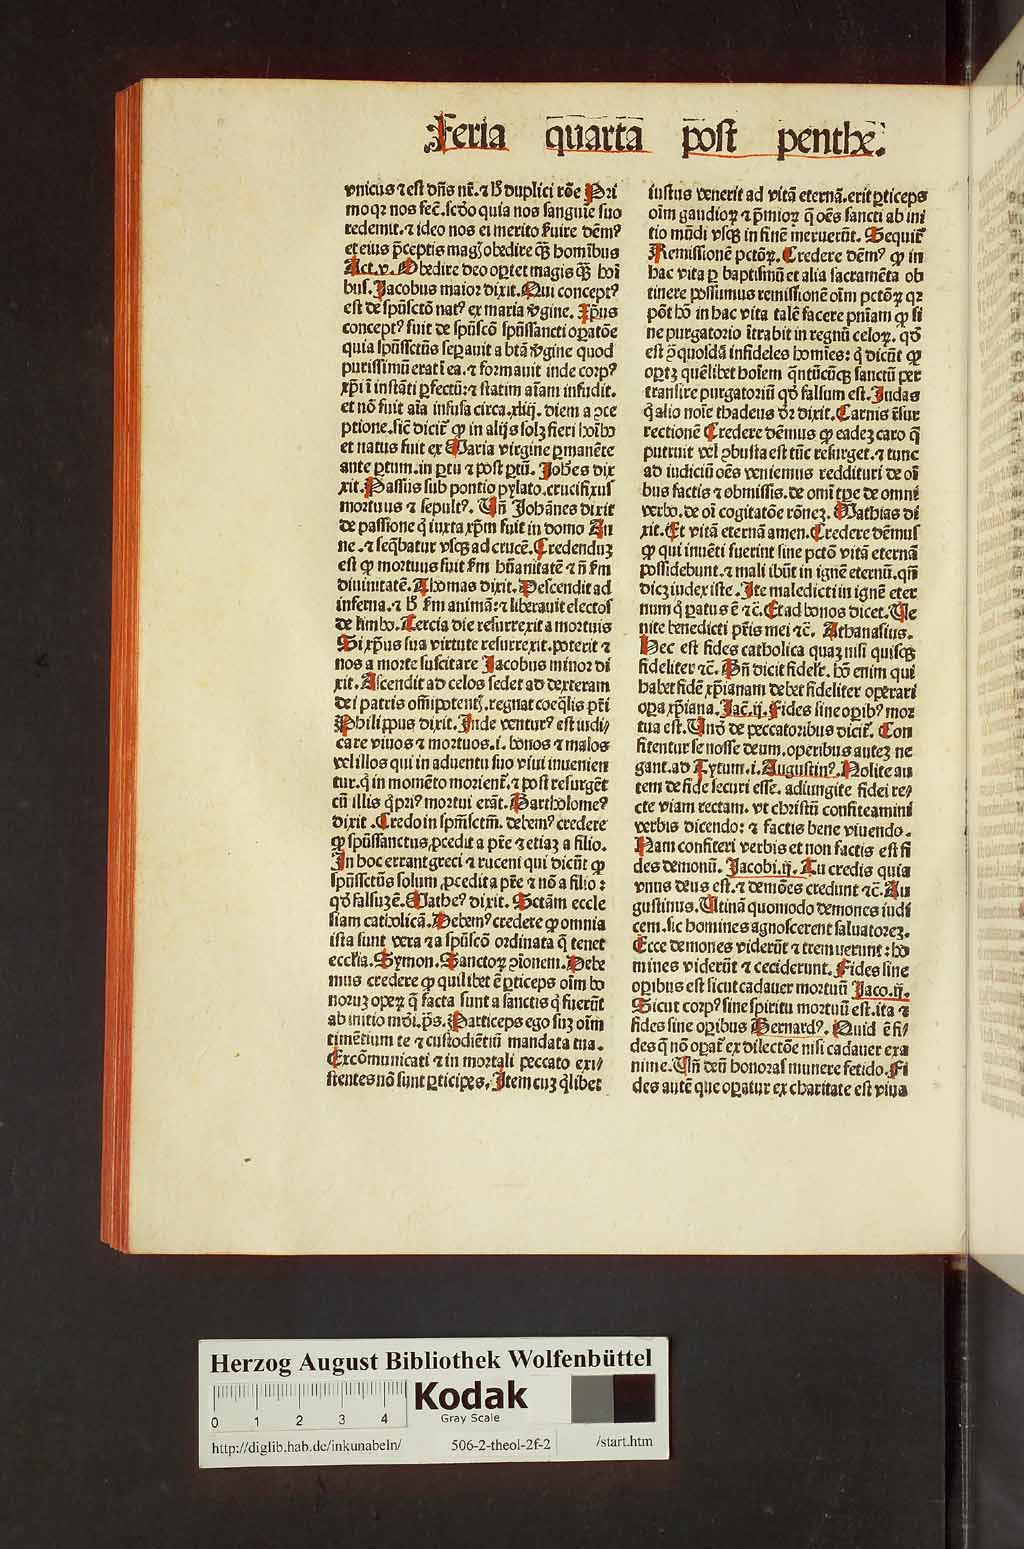 Feria quarta post penthe.
vnicus ⁊ est dn̄s nr̄. ⁊ hͦ duplici rōe Pri
moqꝛ nos fec̄. scd̄o quia nos sanguīe suo
redemit. ⁊ ideo nos ei merito ẜuire dēmꝰ
et eius p̄ceptis magꝭ obedire qȝ̄ homībus
Act. v. Obedire deo oꝑtet magis qȝ̄ hoī
bus. Jacobus maior dixit. Qui conceptꝰ
est de spūsctō natꝰ ex maria v̄gine. Xp̄us
conceptꝰ fuit de spūscō spūssancti oꝑatōe
quia spūssctūs seꝑauit a btā v̄gine quod
purissimū erat ī ea. ⁊ formauit inde corpꝰ
xp̄i ī instāti ꝑfectū: ⁊ statim aīam infudit.
et nō fuit aīa infusa circa .xliij. diem a ↄce
ptione. sic̄ dicit̄ ꝙ in alijs solꝫ fieri hoībꝰ
et natus fuit ex Maria virgine ꝑmanēte
ante ꝑtum. in ꝑtu ⁊ post ꝑtū. Joh̄es dix
xit. Passus sub pontio pylato. crucifixus
mortuus ⁊ sepultꝰ. Vn̄ Johānes dixit
de passione q̇ iuxta xp̄m fuit in domo An
ne. ⁊ seq̄batur vsqȝ ad crucē. Credenduꝫ
est ꝙ mortuus fuit ẜm hūanitatē ⁊ nō ẜm
diuinitatē. Thomas dixit. Descendit ad
inferna. ⁊ hͦ ẜm animā: ⁊ liberauit electos
de limbo. Tercia die resurrexit a mortuis
Si xp̄us sua virtute resurrexit. poterit ⁊
nos a morte suscitare Jacobus minor di
xit. Ascendit ad celos sedet ad dexteram
dei patris omīpotentꝭ. regnat coeq̄lis pr̄i
Philippus dixit. Inde venturꝰ est iudi⸗
care viuos ⁊ mortuos. i. bonos ⁊ malos
vel illos qui in aduentu suo viui inuenien
tur. q̇ in momēto morient̄. ⁊ post resurgēt
cū illis q̇ priꝰ mortui erāt. Bartholomeꝰ
dixit. Credo in spm̄sctm̄. debemꝰ credere
ꝙ spūssanctus ꝓcedit a pr̄e ⁊ etiaꝫ a filio.
In hoc errant greci ⁊ ruceni qui dicūt ꝙ
spūssctūs solum ꝓcedit a pr̄e ⁊ nō a filio:
qd̓ falsuꝫ ē. Matheꝰ dixit. Sctām eccle
siam catholicā. Debemꝰ credere ꝙ omnia
ista sunt vera ⁊ a spūscō ordinata q̄ tenet
eccl̄ia. Symon. Sanctoꝝ ↄīonem. Debe
mus credere ꝙ quilibet ē ꝑticeps oīm bo
noruꝫ opeꝝ q̄ facta sunt a sanctis q̇ fuerūt
ab initio mūdi. pˢ. Particeps ego suꝫ oīm
timētium te ⁊ custodiētiū mandata tua.
Excōmunicati ⁊ in mortali peccato exi⸗
stentes nō sunt ꝑticipes. Item cuꝫ q̇libet
iustus venerit ad vitā eternā. erit ꝑticeps
oīm gaudioꝝ ⁊ p̄mioꝝ q̄ oēs sancti ab ini
tio mūdi vsqȝ in finē meruerūt. Sequit̄
Remissionē pctōꝝ. Credere dēmꝰ ꝙ in
hac vita ꝑ baptismū et alia sacramēta ob
tinere possumus remissionē oīm pctōꝝ qꝛ
pōt hō in hac vita talē facere pnīam ꝙ si
ne purgatorio ītrabit in regnū celoꝝ. qd̓
est ↄ̄ quosdā infideles homīes: q̇ dicūt ꝙ
oꝑtꝫ quēlibet hoīem q̄ntūcūqȝ sanctū per
transire purgatoriū qd̓ falsum est. Judas
q̇ alio noīe thadeus dr̄ dixit. Carnis resur
rectionē Credere dēmus ꝙ eadeꝫ caro q̄
putruit vel ↄbusta est tūc resurget. ⁊ tunc
ad iudiciū oēs veniemus reddituri de oī
bus factis ⁊ obmissis. de omī tꝑe de omni
verbo. de oī cogitatōe rōneꝫ. Mathias di
xit. Et vitā eternā amen. Credere dēmus
ꝙ qui inuēti fuerint sine pctō vitā eternā
possidebunt. ⁊ mali ibūt in ignē eternū. qn̄
dicꝫ iudex iste. Ite maledicti in ignē eter
num q̇ ꝑatus ē ⁊c̄. Et ad bonos dicet. Ve
nite benedicti pr̄is mei ⁊c̄. Athanasius.
Hec est fides catholica quaꝫ nisi quisqȝ
fideliter ⁊c̄. Bn̄ dicit fidelr̄. hō enim qui
habet fidē xp̄ianam debet fideliter operari
oꝑa xp̄iana. Jac̄. ij. Fides sine oꝑibꝰ mor
tua est. Vnd̓ de peccatoribus dicit̄. Con
fitentur se nosse deum. operibus auteꝫ ne
gant. ad Tytum. i. Augustinꝰ. Nolite au
tem de fide securi esse. adiungite fidei re⸗
cte viam rectam. vt christū confiteamini
verbis dicendo: ⁊ factis bene viuendo.
Nam confiteri verbis et non factis est fi
des demonū. Jacobi. ij. Tu credis quia
vnus deus est. ⁊ demōes credunt ⁊c̄. Au
gustinus. Vtinā quomodo demones iudi
cem. sic homines agnoscerent saluatoreꝫ.
Ecce demones viderūt ⁊ tremuerunt: ho
mines viderūt ⁊ ceciderunt. Fides sine
oꝑibus est sicut cadauer mortuū Jaco. ij.
Sicut corpꝰ sine spiritu mortuū est. ita ⁊
fides sine oꝑibus Bernardꝰ. Quid ē fi⸗
des q̄ nō oꝑat̄ ex dilectōe nisi cadauer exa
nime. Vn̄ deū honoras munere fetido. Fi
des autē que oꝑatur ex charitate est viua
Herzog August Bibliothek Wolfenbüttel
0 1 2 3 4
Kodak
Gray Scale
http://diglib.hab.de/inkunabeln/ 506-2-theol-2f-2 /start.htm